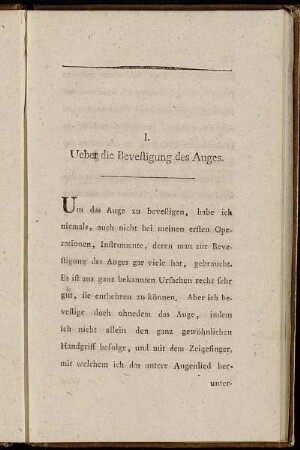 I.
Ueber die Beveſtigung des Auges.
Um das Auge zu beveſtigen, habe ich
niemals, auch nicht bei meinen erſten Ope-
rationen, Inſtrumente, deren man zur Beve-
ſtigung des Auges gar viele hat, gebraucht.
Es iſt aus ganz bekannten Urſachen recht ſehr
gut, ſie entbehren zu können. Aber ich be-
veſtige doch ohnedem das Auge, indem
ich nicht allein den ganz gewöhnlichen
Handgriff befolge, und mit dem Zeigefinger,
mit welchem ich das untere Augenlied her-
unter-